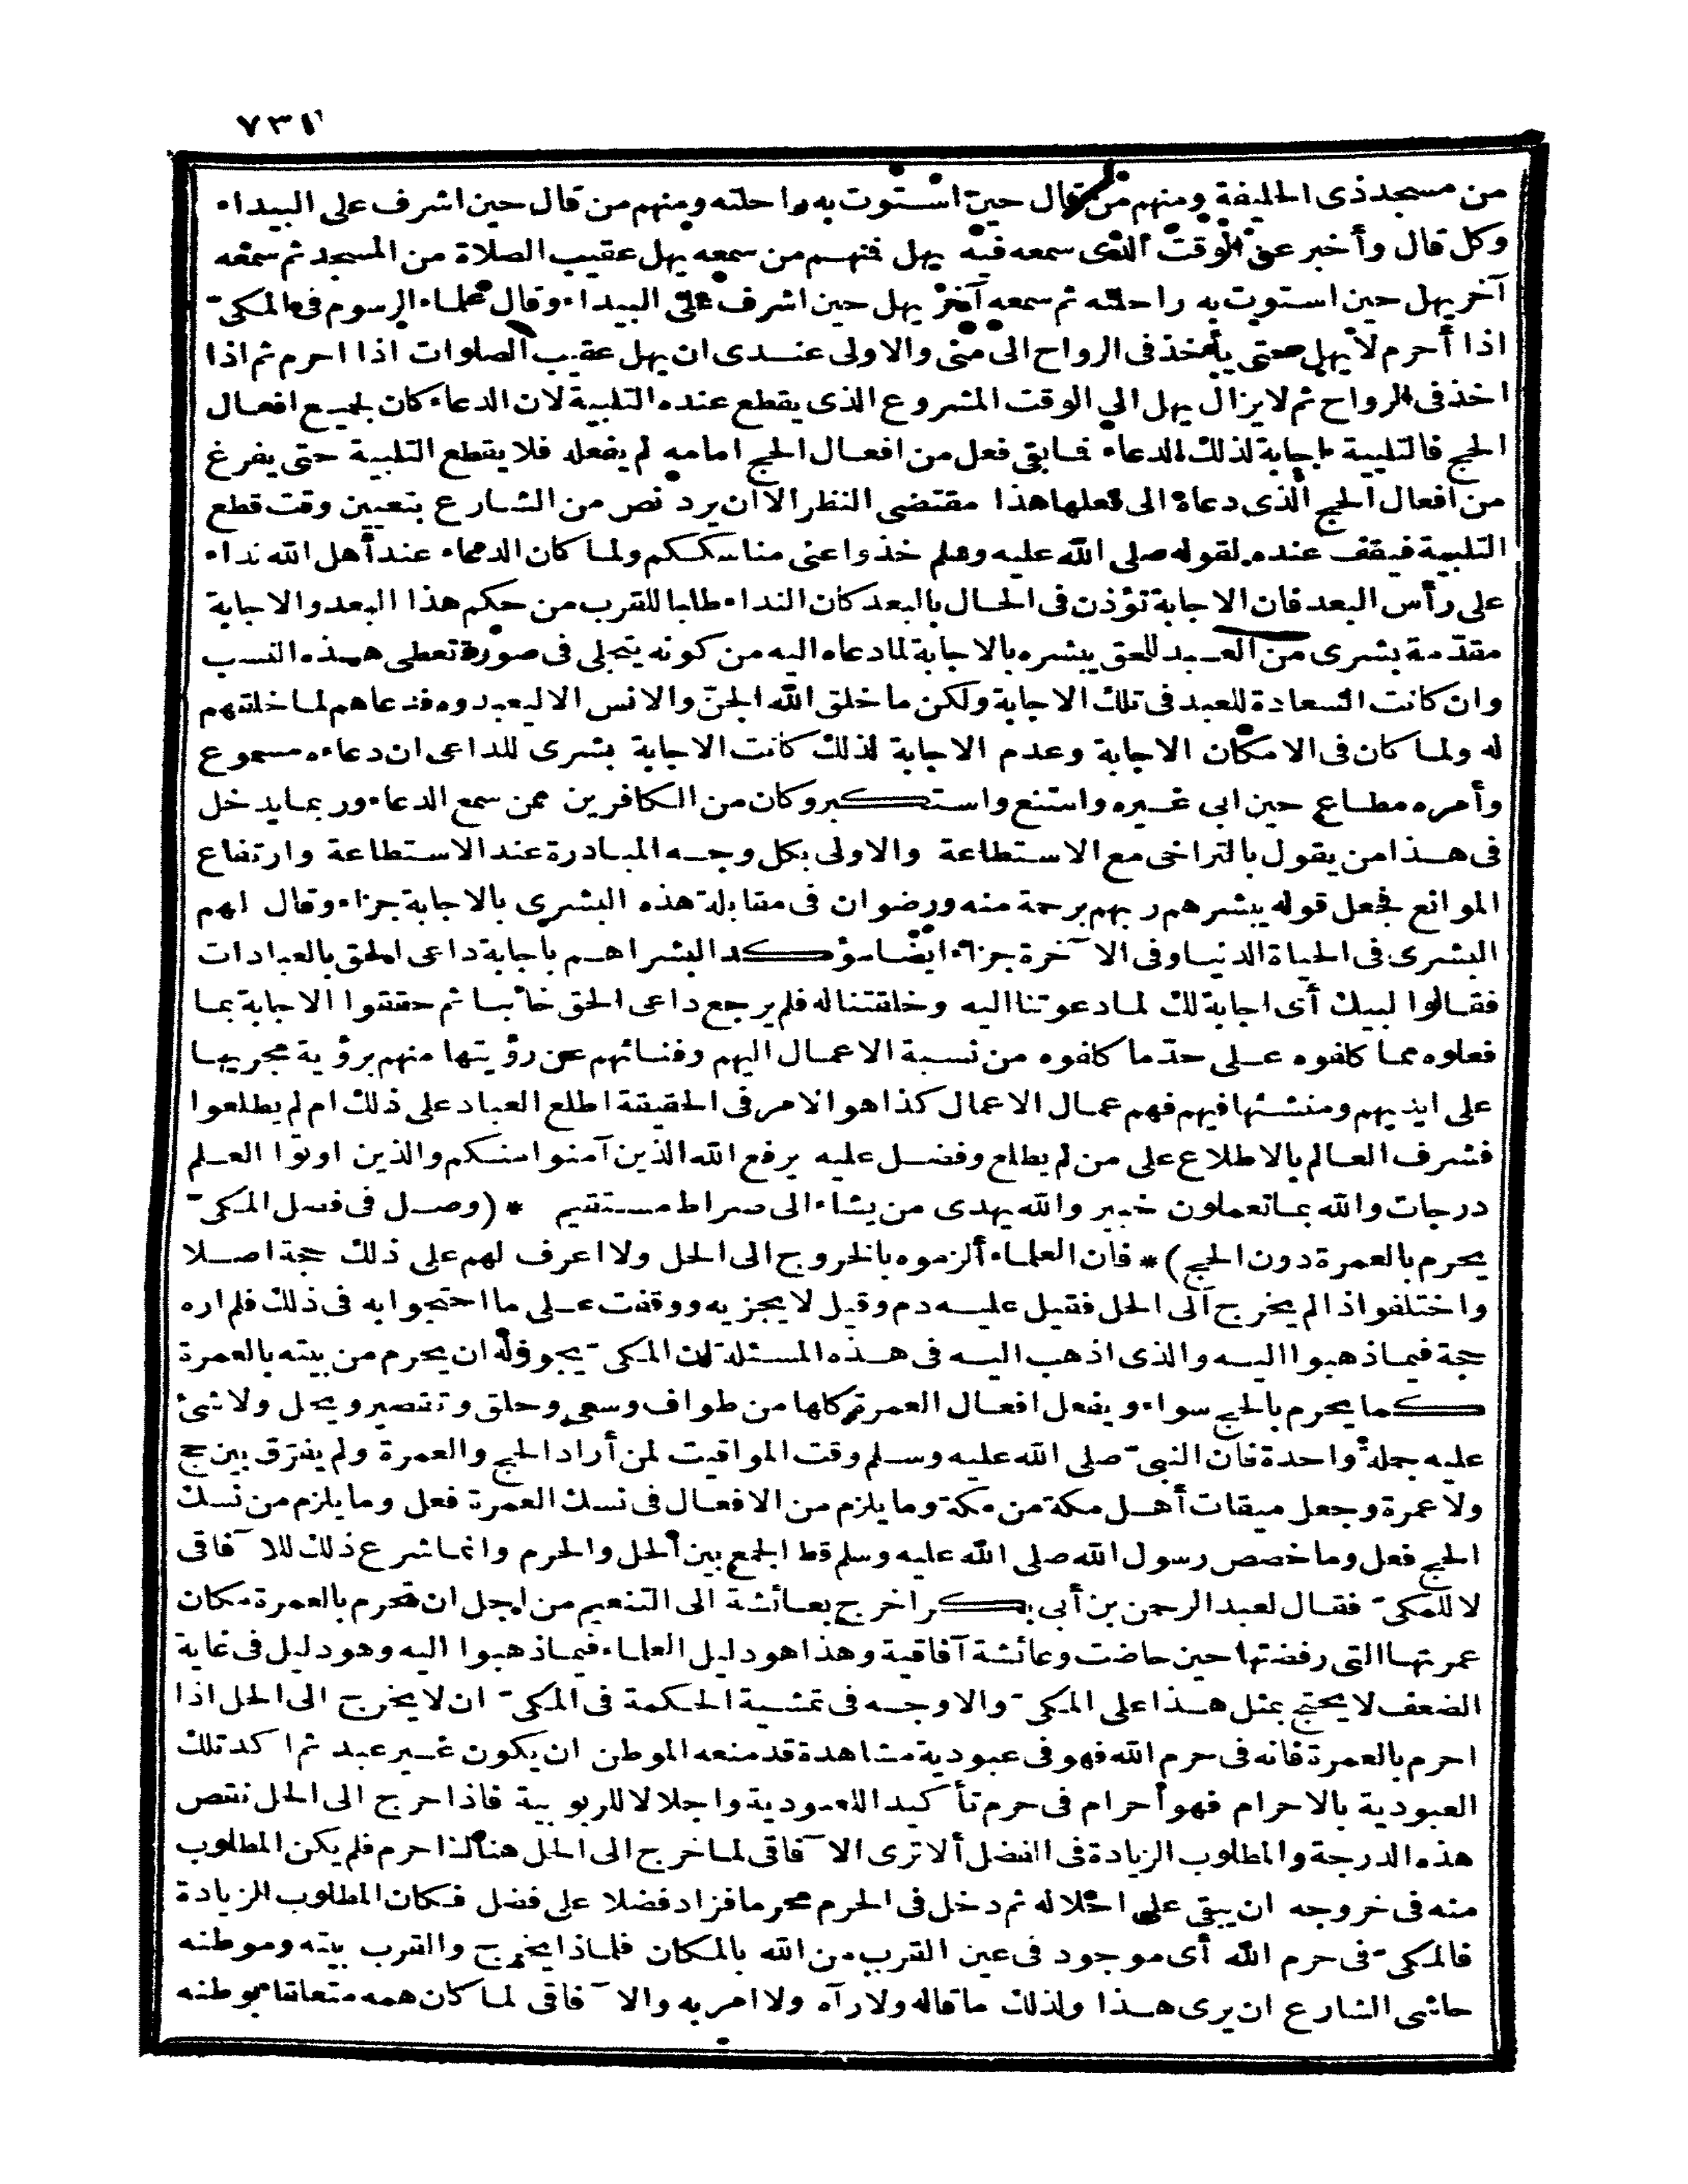 ٧٣١
من مسجد ذى الحليفة ومنهم من قال حين استوت به راحلته ومنهم من قال حين اشرف على البيداء
وكل قال وأخبر عن الوقت الذى سمعه فيه يهل فنهم من سمعه يهل عقيب الصلاة من المسجد ثم سمعه
آخر يهل حين استوت به راحلته ثم سمعه آخر يهل حين اشرف على البيداء وقال علماء الرسوم فى المكىّ
اذا أحرم لا يهل حتى يأخذ فى الرواح الى منى والاولى عندى ان يهل عقيب الصلوات اذا احرم ثم اذا
اخذ فى الرواح ثم لا يزال يهل الى الوقت المشروع الذى يقطع عنده التلبية لان الدعاء كان لجميع افعال
الحج فالتلبية اجابة لذلك الدعاء فابقى فعل من افعال الحج امامه لم يفعله فلا يقطع التلبية حتى يفرغ
من افعال الحج الذى دعاه الى فعلها هذا مقتضى النظر الا ان يرد نص من الشارع بتعيين وقت قطع
التلبية فيقف عنده لقوله صلى الله عليه وسلم خذوا عنى مناسككم ولما كان الدعاء عند أهل الله نداء
على رأس البعد فان الاجابة تؤذن فى الحال بالبعد كان النداء طلبا للقرب من حكم هذا البعد والاجابة
مقدّمة بشرى من العبد للحق يبشره بالاجابة لما دعاه اليه من كونه يتجلى فى صورة تعطى هذه النسب
وان كانت السعادة للعبد فى تلك الاجابة ولكن ما خلق الله الجنّ والانس الا ليعبدوه فدعاهم لما خلقهم
له ولما كان فى الامكان الاجابة وعدم الاجابة لذلك كانت الاجابة بشرى للداعى ان دعاءه مسموع
وأمره مطاع حين ابى غيره وامتنع واستكبر وكان من الكافرين ممن سمع الدعاء وربما يدخل
فى هذا من يقول بالتراخى مع الاستطاعة والاولى بكل وجه المبادرة عند الاستطاعة وارتفاع
الموانع فجعل قوله يبشرهم ربهم برحمة منه ورضوان فى مقابلة هذه البشرى بالاجابة جزاء وقال لهم
البشرى فى الحياة الدنيا وفى الآخرة جزاء ايضا مؤكد البشراهم باجابة داعى الحق بالعبادات
فقالوا لبيك أى اجابة لك لما دعوتنا اليه وخلقتنا له فلم يرجع داعى الحق خائبا ثم حققوا الاجابة بما
فعلوه مما كلفوه على حدّ ما كلفوه من نسبة الاعمال اليهم وفنائهم عن رؤيتها منهم برؤية مجريها
على ايديهم ومنشئها فيهم فهم عمال الاعمال كذا هو الامر فى الحقيقة اطلع العباد على ذلك ام لم يطلعوا
فشرف العالم بالاطلاع على من لم يطلع وفضل عليه يرفع الله الذين آمنوا منكم والذين اوتوا العلم
درجات والله بما تعملون خبير والله يهدى من يشاء الى صراط مستقيم * (وصل فى فصل المكىّ
يحرم بالعمرة دون الحج) * فان العلماء ألزموه بالخروج الى الحل ولا اعرف لهم على ذلك حجة اصلا
واختلفوا اذا لم يخرج الى الحل فقيل عليه دم وقيل لا يجزيه ووقفت على ما احتجوا به فى ذلك فلم اره
حجة فيما ذهبوا اليه والذى اذهب اليه فى هذه المسئلة ان المكىّ يجوز له ان يحرم من بيته بالعمرة
كما يحرم بالحج سواء ويفعل افعال العمرة كلها من طواف وسعى وحلق وتقصير ويحل ولا شئ
عليه جملة واحدة فان النبىّ صلى الله عليه وسلم وقت المواقيت لمن أراد الحج والعمرة ولم يفرّق بين حج
ولا عمرة وجعل ميقات أهل مكة من مكة وما يلزم من الافعال فى نسك العمرة فعل وما يلزم من نسك
الحج فعل وما خصص رسول الله صلى الله عليه وسلم قط الجمع بين الحل والحرم وانما شرع ذلك للآفاقى
لا للمكىّ فقال لعبد الرحمن بن أبى بكر اخرج بعائشة الى التنعيم من اجل ان تحرم بالعمرة مكان
عمرتها التى رفضتها حين حاضت وعائشة آفاقية وهذا هو دليل العلماء فيما ذهبوا اليه وهو دليل فى غاية
الضعف لا يحتج بمثل هذا على المكىّ والاوجه فى تمشية الحكمة فى المكىّ ان لا يخرج الى الحل اذا
احرم بالعمرة فانه فى حرم الله فهو فى عبودية مشاهدة قد منعه الموطن ان يكون غير عبد ثم اكد تلك
العبودية بالاحرام فهو أحرام فى حرم تأكيد اللعبودية واجلالا للربوبية فاذا خرج الى الحل نقص
هذه الدرجة والمطلوب الزيادة فى الفضل ألا ترى الآفاقى لما خرج الى الحل هنالك احرم فلم يكن المطلوب
منه فى خروجه ان يبقى على احلاله ثم دخل فى الحرم محرما فزاد فضلا على فضل فكان المطلوب الزيادة
فالمكىّ فى حرم الله أى موجود فى عين القرب من الله بالمكان فلماذا يخرج والقرب بيته وموطنه
حاشى الشارع ان يرى هذا ولذلك ما قاله ولا رآه ولا امر به والآفاقى لما كان همه متعلقا بموطنه